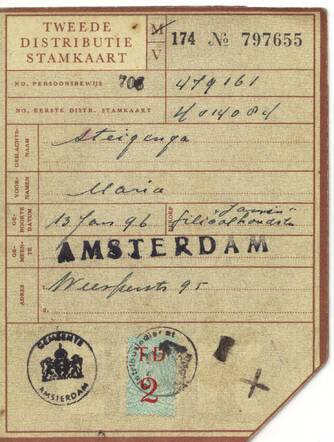 TWEEDE
DISTRIBUTIE
STAMKAART
M
V
174 № 797655
NO. PERSOONSBEWIJS
708 479161
NO. EERSTE DISTR. STAMKAART
4014084
GESLACHTS-NAAM
Steigenga
VOOR-NAMEN
Maria
GE-BOORTE DATUM
13 Jan 96
BEROEP
Filiaalhoudster
GE-MEEN-TE
AMSTERDAM
ADRES
Weesperstr 95
a.
GEMEENTE
AMSTERDAM
Distributiedienst
FD
2